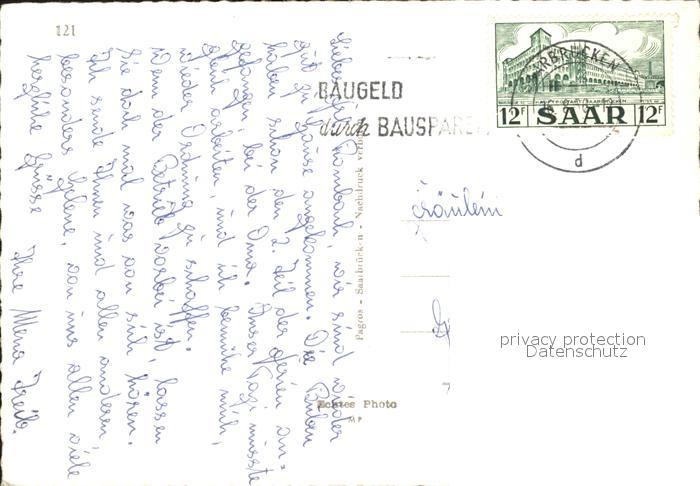 121
Liebes Frl. Rombach, wir sind wieder
gut zu Hause angekommen. Die Buben
haben schon den 2. Teil der Ferien an=
gefangen, bei der Oma. Unser Papi müsste
arbeiten, und ich bemühe mich,
wieder Ordnung zu schaffen.
Wenn der Betrieb vorbei ist, lassen
Sie doch mal was von sich hören.
Ich sende Ihnen und allen anderen,
besonders Helene, von uns allen viele
herzliche Grüsse
Ihre
BAUGELD
durch BAUSPAREN
SAARBRÜCKEN
d
12F SAAR 12F
Fräulein
Pagros - Saarbrücken - Nachdruck verb
Echtes Photo
MP
privacy protection
Datenschutz